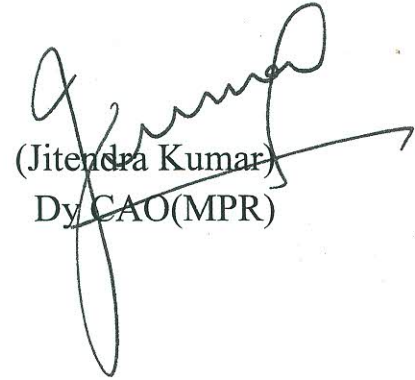 (Jitendra Kumar)
Dy CAO(MPR)